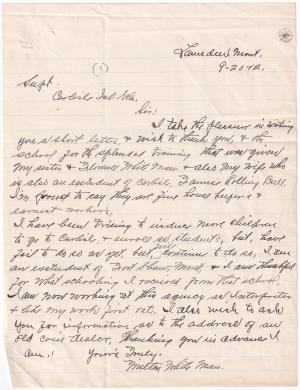 (1)
Lame deer, Mont.
9-20-12.
Supt.
Carlisle Ind Sch.
Sir:
I take the pleasure in writing
you a short letter, & wish to thank you, & the
school for the splendid training that was given
my sister & Florence White Man. & also my wife who
is also an exstudent of Carlisle, Fannie Rolling Bull.
I'm proud to say they are fine house keepers &
earnest workers.
I have been trieing to induce more children
to go to Carlisle & enroll as students, but, have
fail to do so as yet. but continue to do so, I am
an exstudent of Fort Shaw, Mont. & I am thankful
for what schooling I received from that school.
I am now working at this agency as Interpreter
& like my work first rate, I also wish to ask
you for information as to the address of an
old coin dealer, Thanking you in advance I
am: Your's Truly.
Milton White Man.